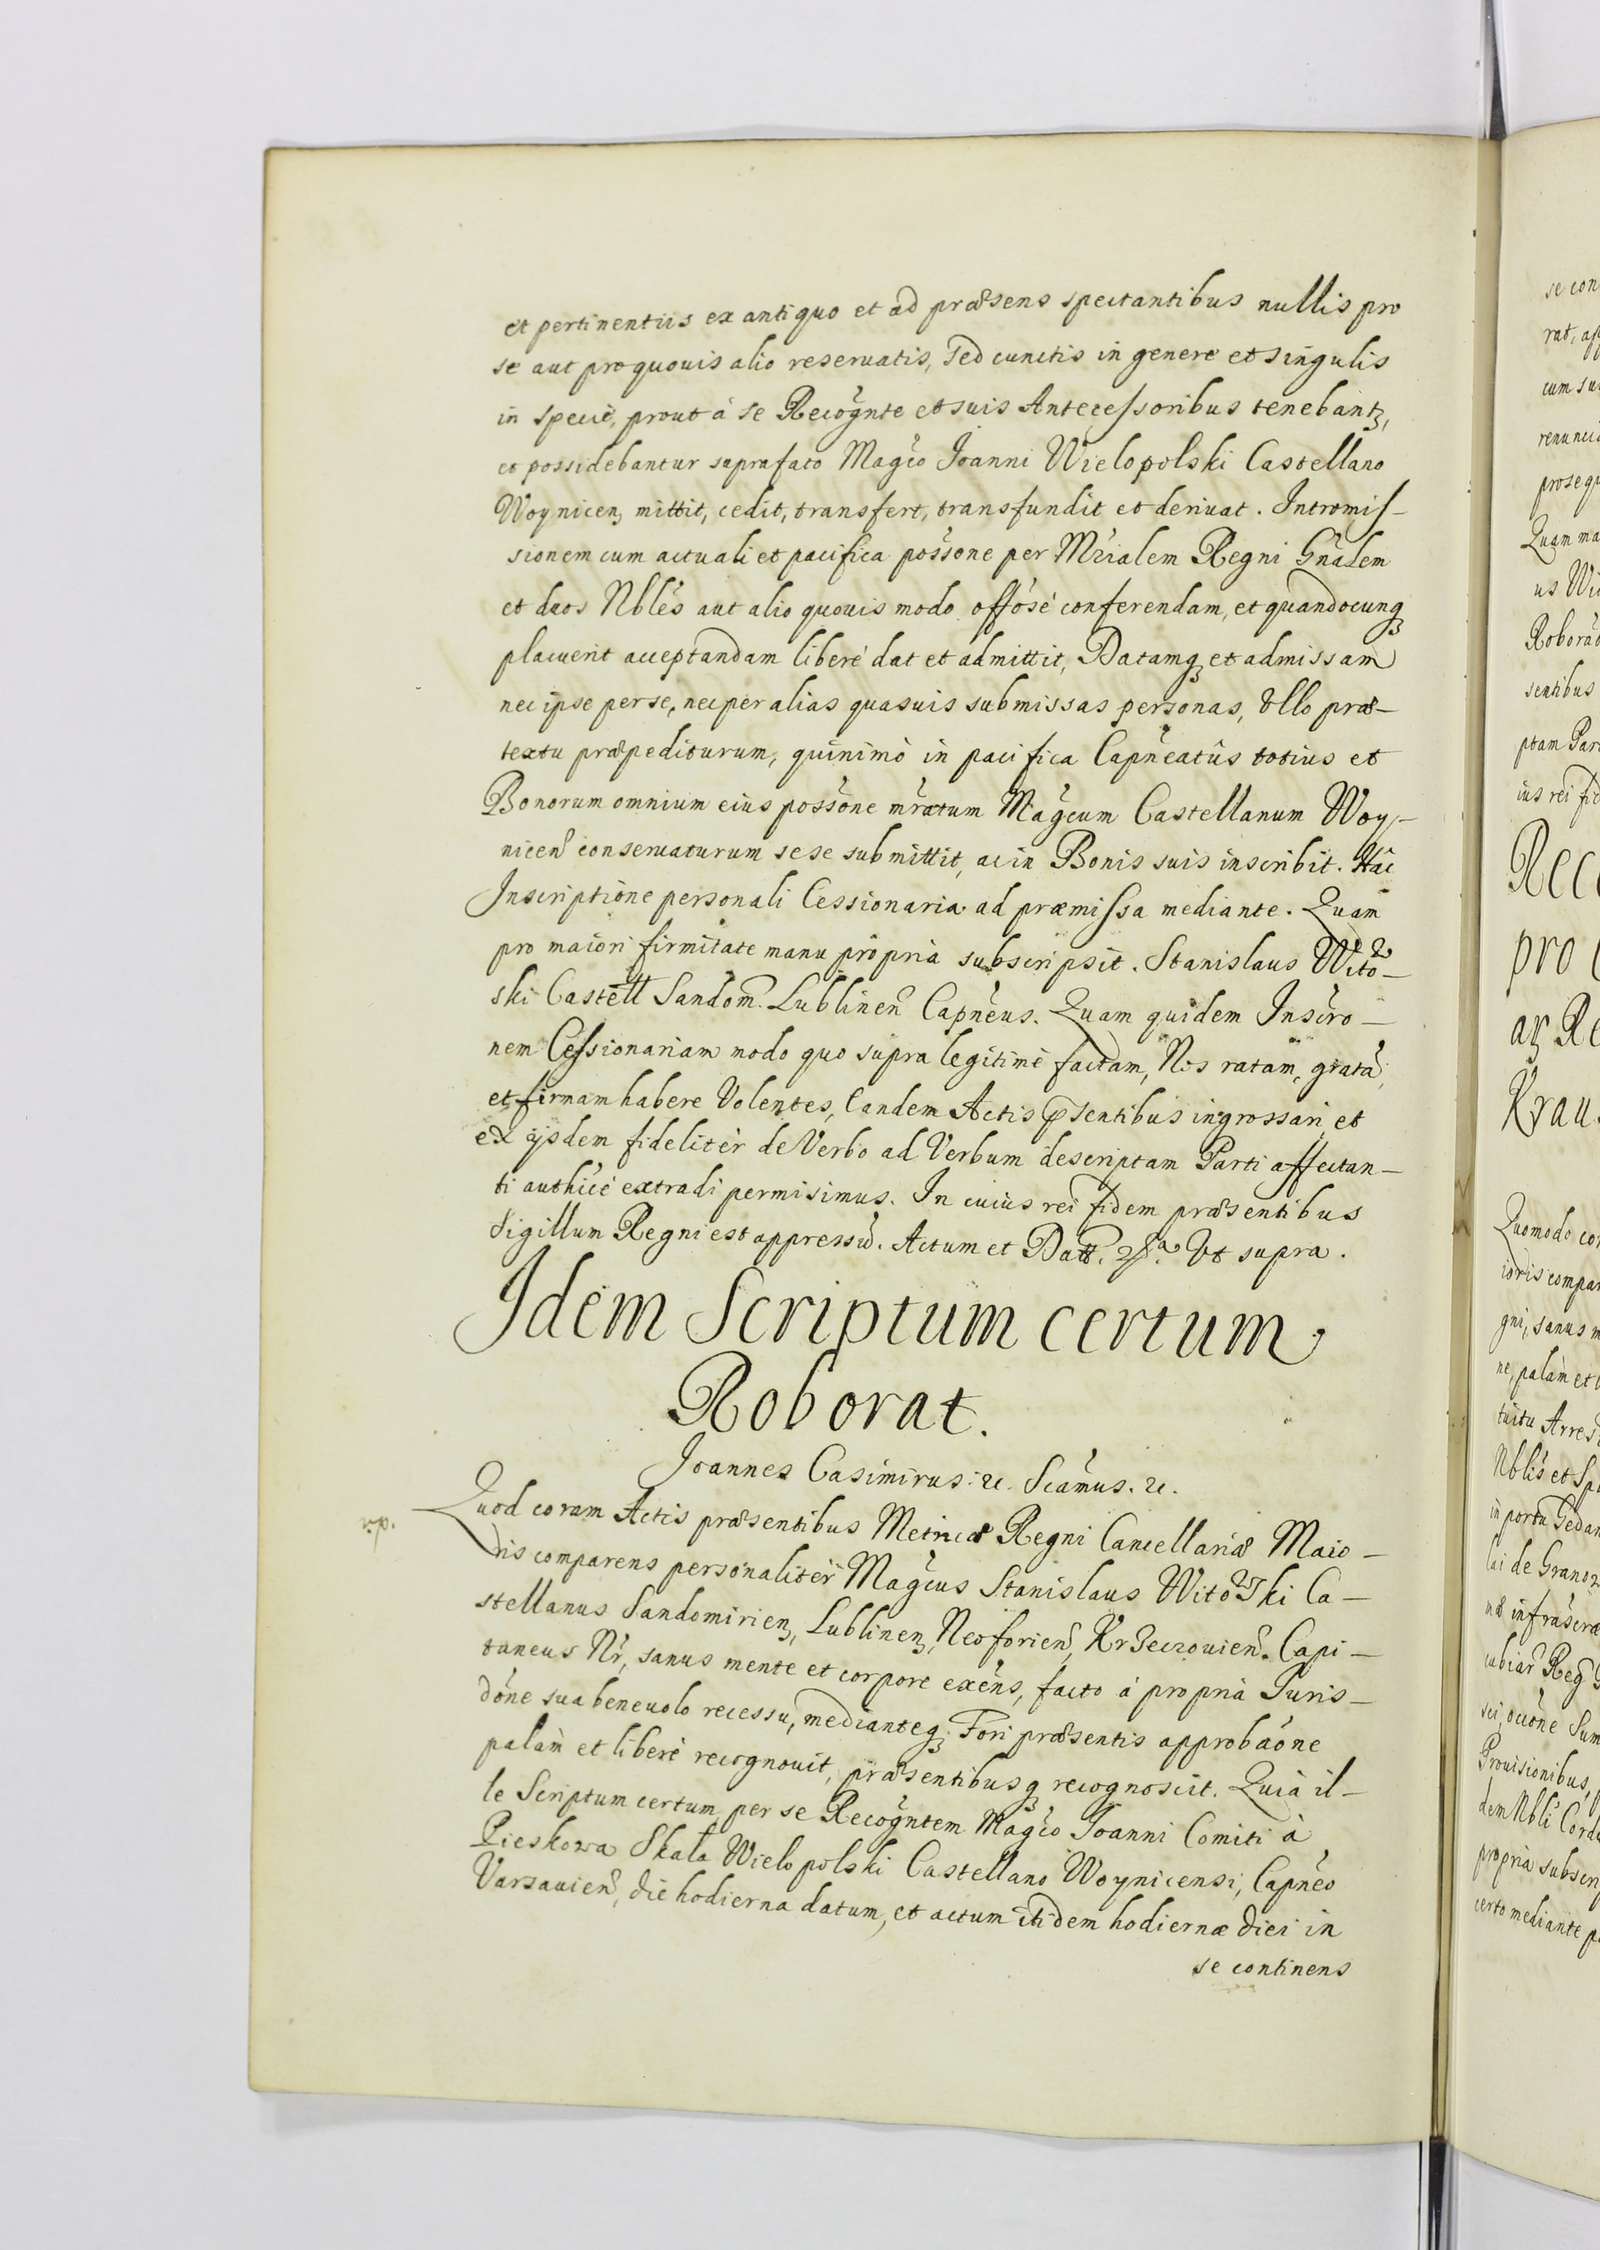 et pertinentiis ex antiquo et ad præsens spectantibus nullis pro
se aut pro quouis alio reseruatis, sed cunctis in genere et singulis
in specie, prout à se Recognte et suis Antecessoribus tenebantʒ,
et possidebantur saprafato Magco Joanni Wielopolski Castellano
Woynicenʒ mittit, cedit, transfert, transfundit et deriuat. Intromis-
sionem cum actuali et pacifica possone per Mrialem Regni Gnalem
et duos Nbles aut alio quouis modo offose conferendam, et quandocunqʒ
placuerit acceptandam libere dat et admittit, Datamqʒ et admissam
nec ipse per se, nec per alias quasuis submissas personas, Vllo præ-
textu præpediturum, quinimò in pacifica Capneatus totius et
Bonorum omnium eius possone mratum Magcum Castellanum Woy-
nicen conseruaturum sese submittit, ac in Bonis suis inscribit. Hac
Inscriptione personali Cessionaria ad præmissa mediante. Quam
pro maiori firmitate manu propria subscripsit. Stanislaus Wito-
w
ski Castell Sandom. Lublinen Capneus. Quam quidem Inscro-
nem Cessionariam modo quo supra legitime factam, Nos ratam, grata,
et firmam habere Volentes, Eandem Actis pñsentibus ingrossari et
ex ijsdem fideliter de Verbo ad Verbum descriptam Parti affectan-
ti authice extradi permisimus. In cuius rei fidem præsentibus
Sigillum Regni est appressũ. Actum et Datt. Vt supra.
Idem Scriptum certum
Roborat.
Joannes Casimirus. &c. Scamus. &c.
rp.
Quod coram Actis præsentibus Metricæ Regni Cancellariæ Maio-
ris comparens personaliter Magcus Stanislaus Witowski Ca-
stellanus Sandomirienʒ, Lublinenʒ, Neoforien, Krzeczouien. Capi-
taneus Nr, sanus mente et corpore exens, facto à propria Juris-
done sua beneuolo recessu, medianteqʒ Fori præsentis approbaone
palàm et libere recognouit, præsentibusqʒ recognoscit. Quia il-
le Scriptum certum per se Recogntem Magco Joanni Comiti à
Pieskowa Skała Wielopolski Castellano Woynicensi, Capneo
Varsauien, die hodierna datum, et actum itidem hodiernæ diei in
se continens